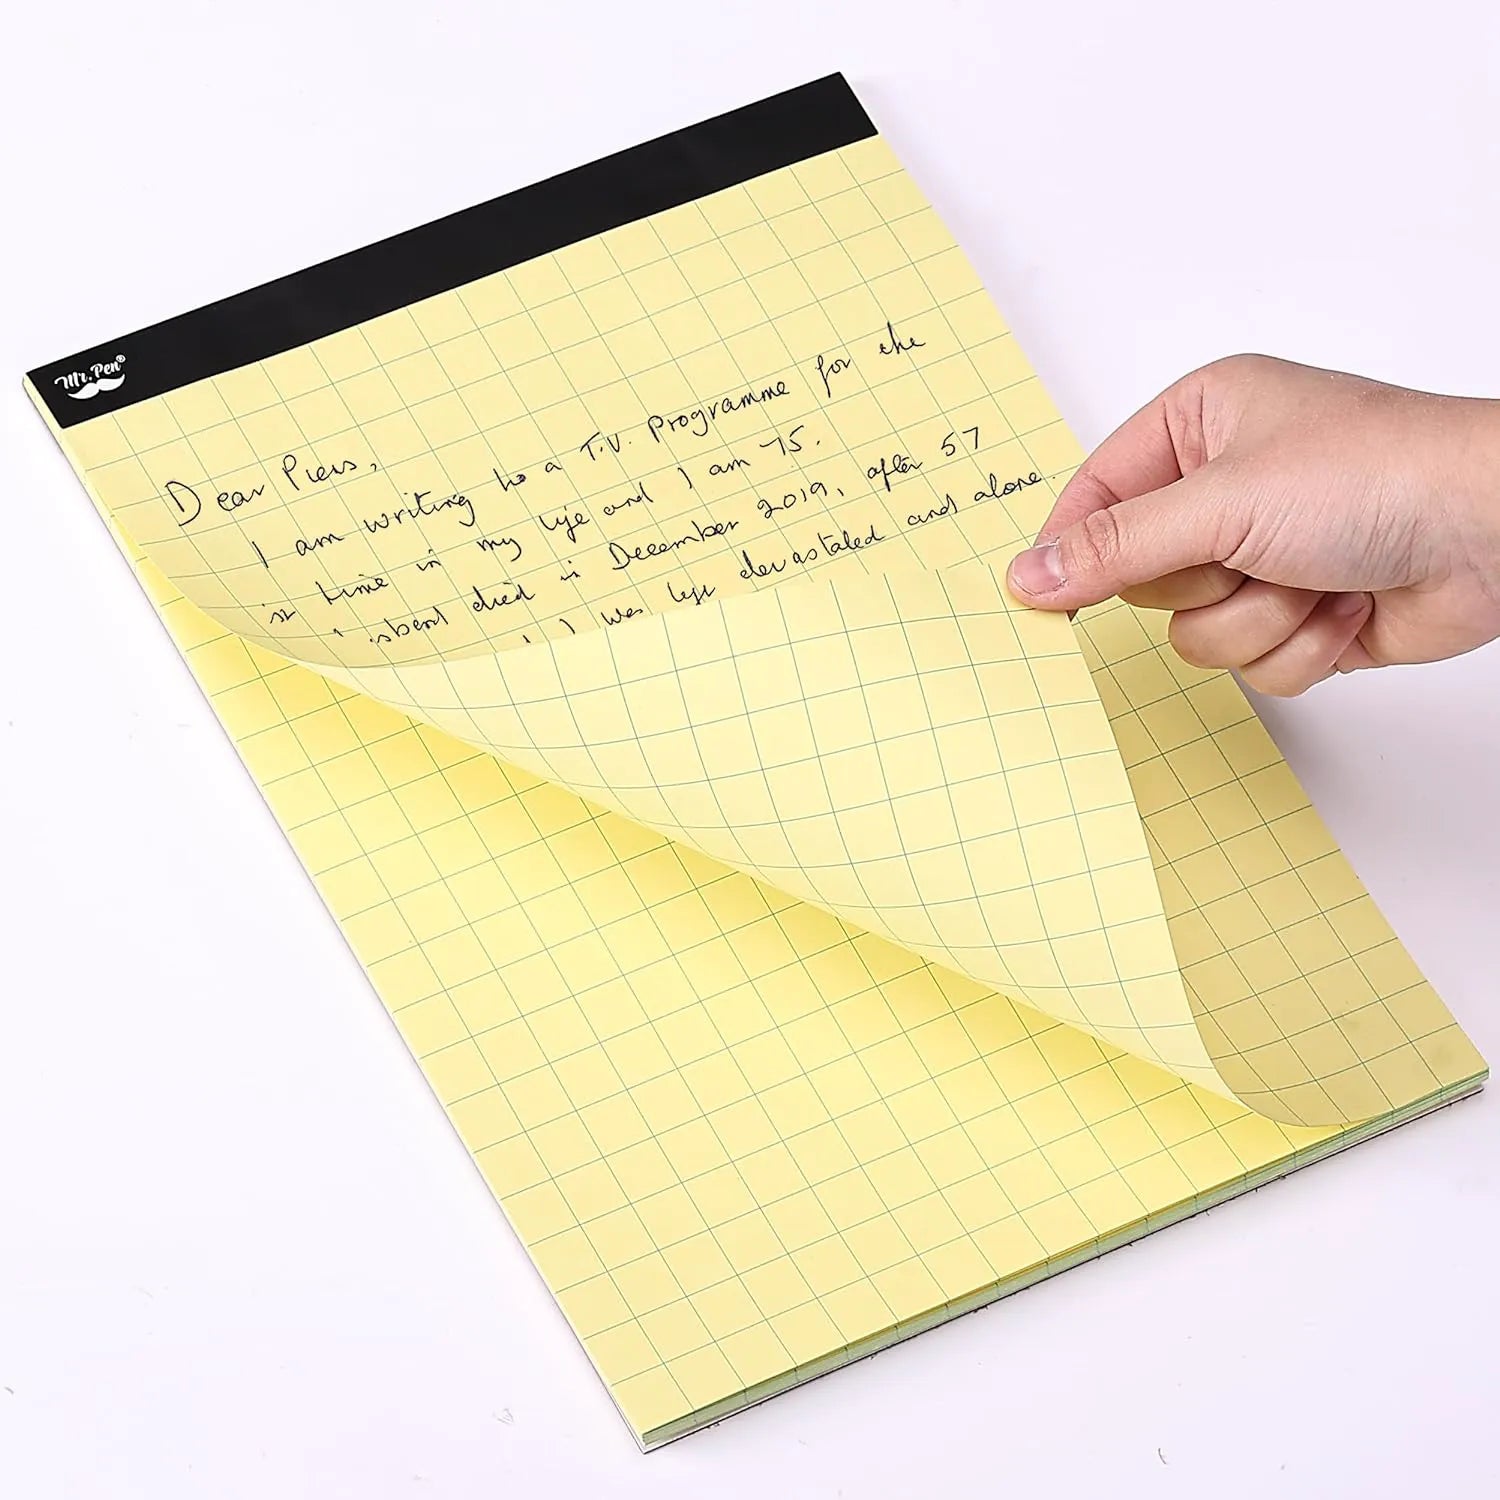 Mr. Pen®
Dear Piers,
I am writing to a T.V. Programme for the
st time in my life and I am 75.
sband died in December 2019, after 57
I was left devastated and alone.